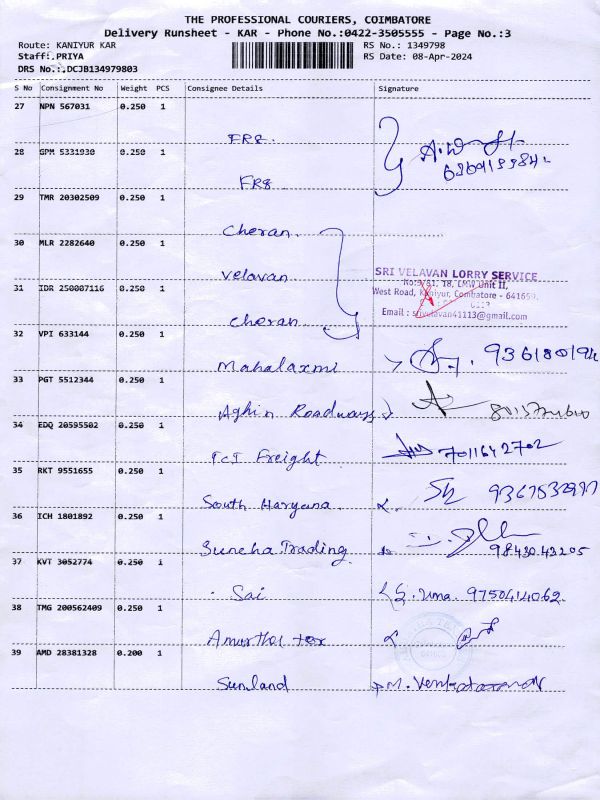 THE PROFESSIONAL COURIERS, COIMBATORE
Delivery Runsheet - KAR - Phone No.:0422-3505555 - Page No.:3
Route: KANIYUR KAR RS No.: 1349798
Staff:,PRIYA RS Date: 08-Apr-2024
DRS No.:,DCJB134979803
S No Consignment No Weight PCS Consignee Details Signature
27 NPN 567031 0.250 1
FR8
28 GPM 5331930 0.250 1
FR8
29 TMR 20302509 0.250 1
Cheran
30 MLR 2282640 0.250 1
Velavan
31 IDR 250007116 0.250 1
Cheran
SRI VELAVAN LORRY SERVICE
No:9/81, 18, LMW Unit II,
West Road, Kaniyur, Coimbatore - 641659.
Email : srivelavan41113@gmail.com
32 VPI 633144 0.250 1
Mahalaxmi
33 PGT 5512344 0.250 1
Roadways
34 EDQ 20595502 0.250 1
TCI Freight 7011642702
35 RKT 9551655 0.250 1
South Haryana
36 ICH 1801892 0.250 1
Suncha Trading
37 KVT 3052774 0.250 1
Sai S. Uma. 9750414062
38 TMG 200562409 0.250 1
tex
39 AMD 28381328 0.200 1
Sunland